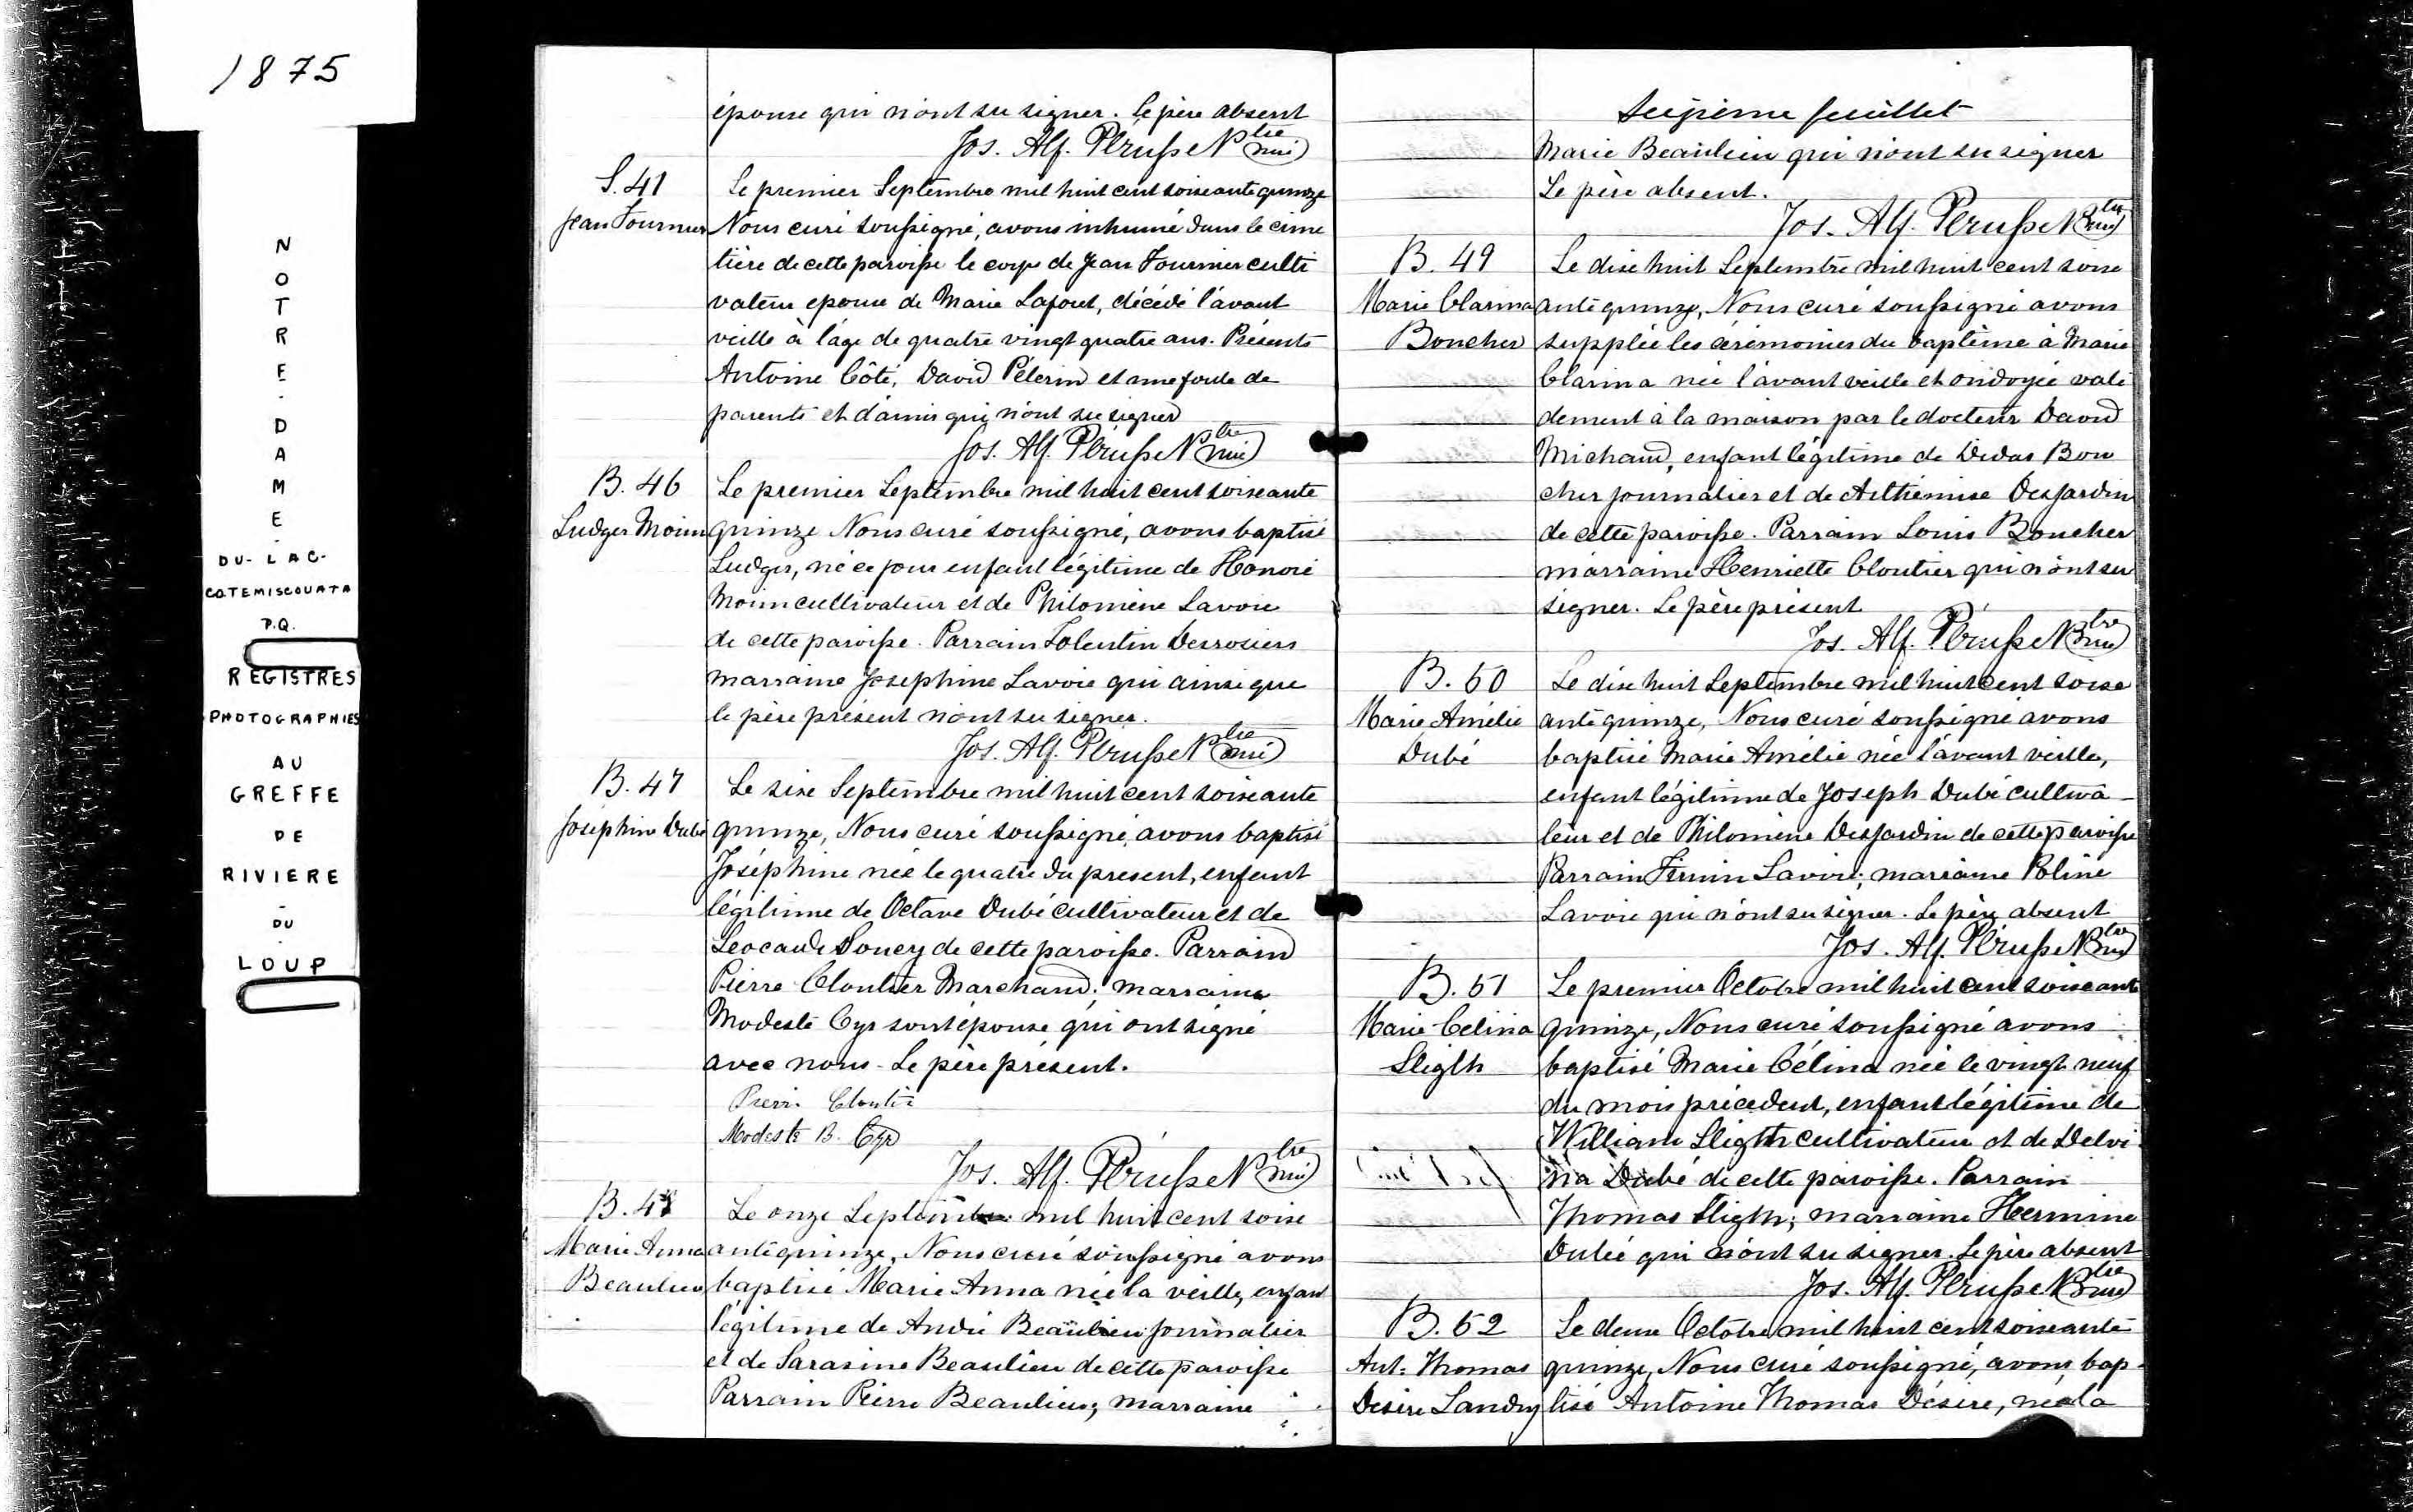 1875
NOTRE-DAME-
DU-LAC-
COTEMISCOUATA
P.Q.
REGISTRES
PHOTOGRAPHIES
AU
GREFFE
DE
RIVIERE
-
DU
-
LOUP
épouse qui n'ont su signer. Le père absent
Jos. Alf. Pérusse Ptre
S. 41
Jean Fournier
Le premier Septembre mil huit cent soixante quinze
Nous curé soussigné, avons inhumé dans le cime
tière de cette paroisse le corps de Jean Fournier culti
vateur epoux de Marie Lafont, décédé l'avant
veille à l'âge de quatre vingt quatre ans. Présents
Antoine Côté, David Pélerin et une foule de
parents et d'amis qui n'ont su signer
Jos. Alf. Pérusse Ptre
B. 46
Ludger Moirin
Le premier Septembre mil huit cent soixante
quinze Nous curé soussigné, avons baptisé
Ludger, né ce jour enfant légitime de Honoré
Morin cultivateur et de Philomène Lavoie
de cette paroisse. Parrain Tolentin Desrosiers
marraine Josephine Lavoie qui ainsi que
le père présent n'ont su signer.
Jos. Alf. Pérusse Ptre
B. 47
Josephine Dubé
Le six Septembre mil huit cent soixante
quinze, Nous curé soussigné, avons baptisé
Joséphine née le quatre du present, enfant
légitime de Octave Dubé cultivateur et de
Léocade Soucy de cette paroisse. Parrain
Pierre Cloutier Marchand; marraine
Modeste Cyr sont épouse qui ont signé
avec nous - Le père présent.
Pierre Cloutier
Modeste B. Cyr
Jos. Alf. Pérusse Ptre
B. 48
Marie Anna
Beaulieu
Le onze Septembre mil huit cent soix
ante quinze, Nous curé soussigné avons
baptisé Marie Anna née la veille, enfant
légitime de André Beaulieu journalier
et de Sarasine Beaulieu de cette paroisse
Parrain Pierre Beaulieu; marraine
Seizième feuillet
Marie Beaulieu qui n'ont su signer
Le père absent.
Jos. Alf. Pérusse Ptre
B. 49
Marie Clarina
Boucher
Le dix huit Septembre mil huit cent soix
ante quinze, Nous curé soussigné avons
supplée les cérémonies du baptême à Marie
Clarina née l'avant veille et ondoyée vali
dement à la maison par le docteur David
Michaud, enfant légitime de Didas Bou
cher journalier et de Arthémise DesJardin
de cette paroisse. Parrain Louis Boucher
marraine Henriette Cloutier qui n'ont su
signer. Le père présent
Jos. Alf. Pérusse Ptre
B. 50
Marie Amélie
Dubé
Le dix huit Septembre mil huit cent soix
ante quinze, Nous curé soussigné avons
baptisé Marie Amélie née l'avant veille,
enfant légitime de Joseph Dubé cultiva-
teur et de Philomène DesJardin de cette paroisse
Parrain Firmin Lavoie; marraine Poline
Lavoie qui n'ont su signer. Le père absent
Jos. Alf. Pérusse Ptre
B. 51
Marie Celina
Sligth
Le premier Octobre mil huit cent soixante
quinze, Nous curé soussigné avons
baptisé Marie Célina née le vingt neuf
du mois précédent, enfant légitime de
William Sligth cultivateur et de Delvi
na Dubé de cette paroisse. Parrain
Thomas Sligth; marraine Hermine
Dubé qui n'ont su signer. Le père absent
Jos. Alf. Pérusse Ptre
B. 52
Ant: Thomas
Desire Landry
Le deux Octobre mil huit cent soixante
quinze, Nous curé soussigné, avons bap-
tisé Antoine Thomas Désire, né la